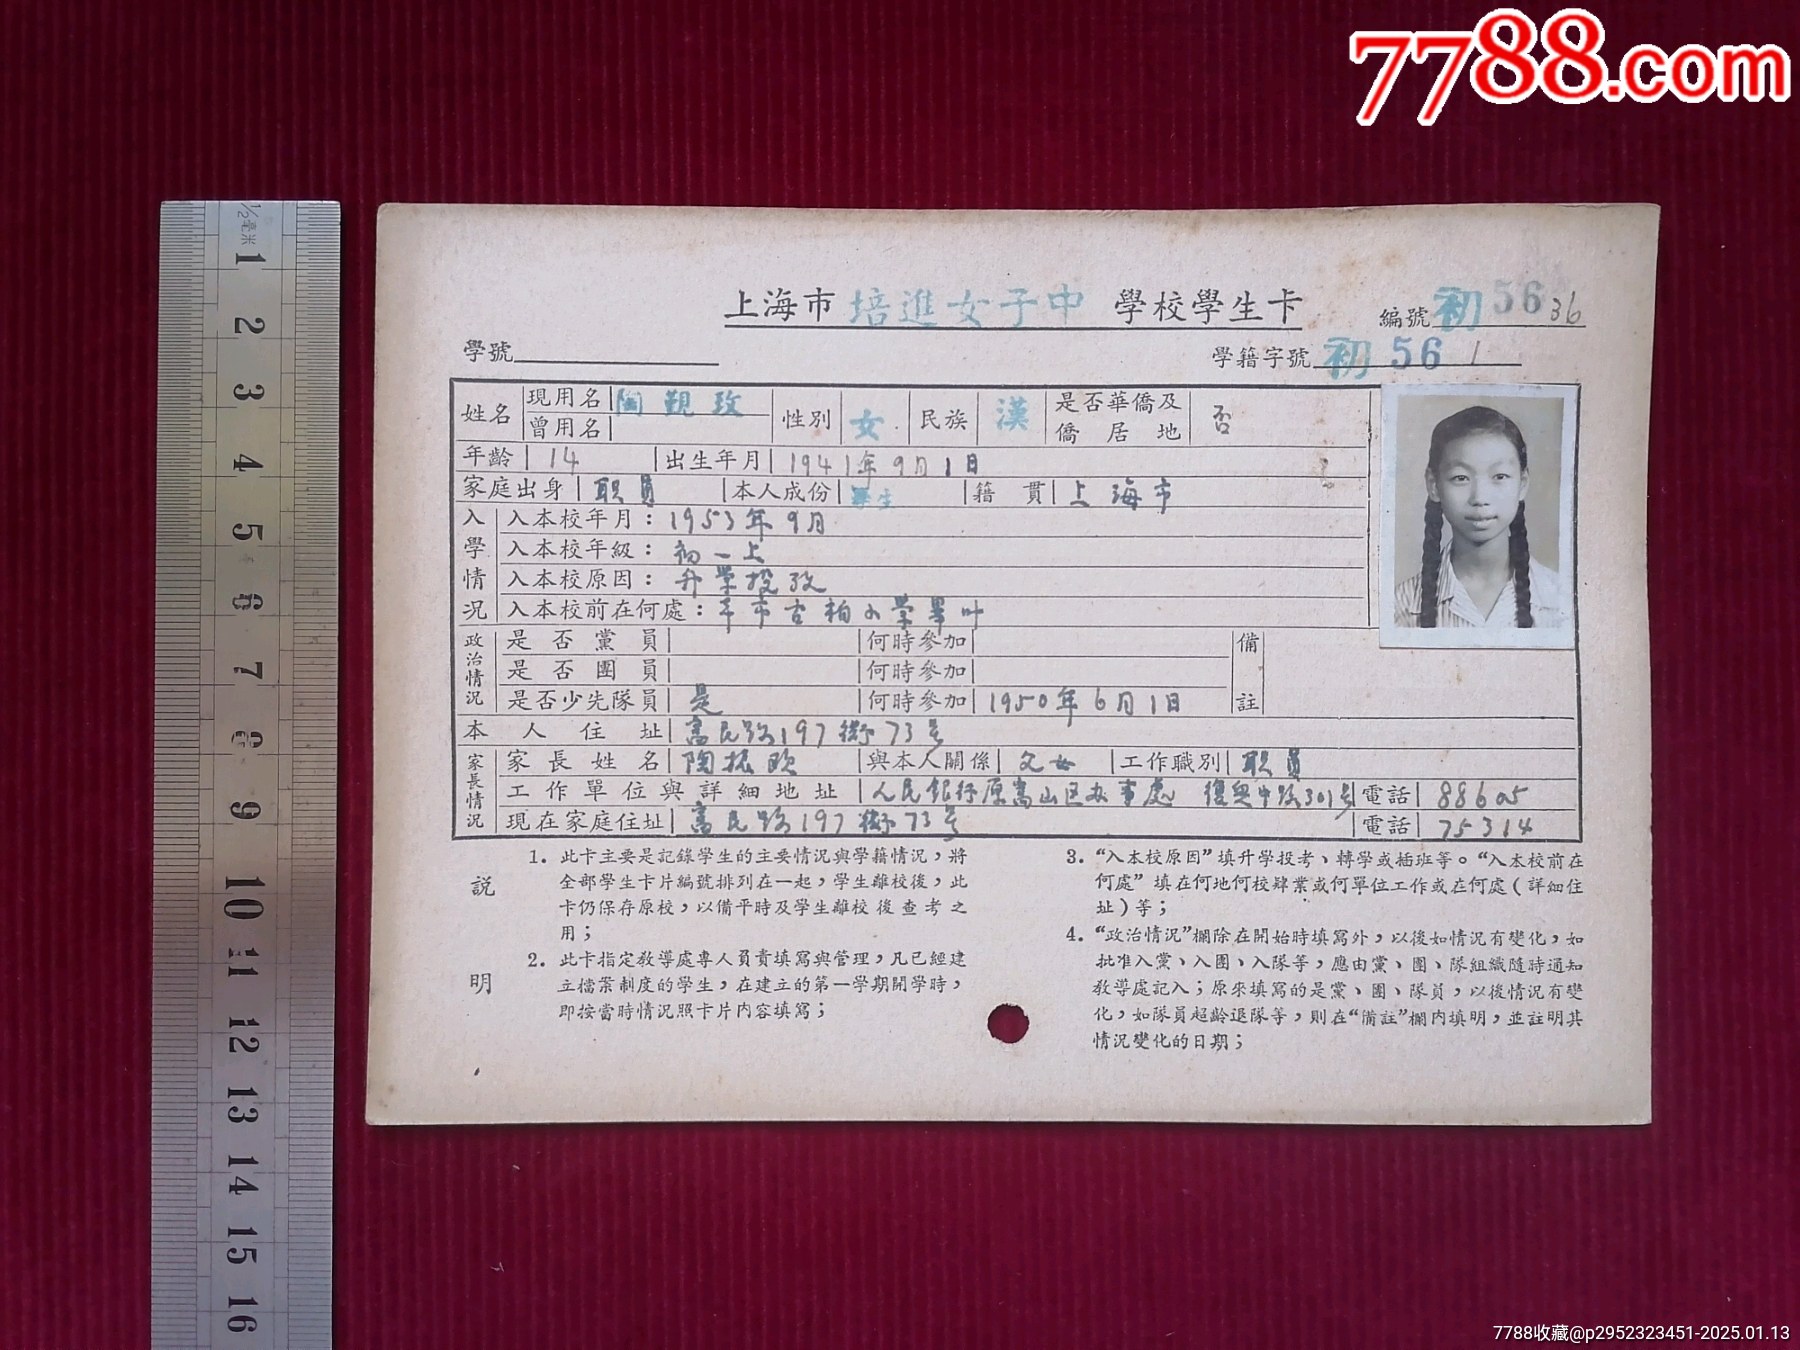 7788.com
上海市 培進女子中 學校學生卡
編號 初 56 36
學號
學籍字號 初 56 1
姓名 現用名 陶觀玫 曾用名 性別 女 民族 漢 是否華僑及僑居地 否
年齡 14 出生年月 1941年9月1日
家庭出身 职員 本人成份 學生 籍貫 上海市
入學情況
入本校年月：1953年9月
入本校年級：初一上
入本校原因：升學投攷
入本校前在何處：本市古柏小學畢业
政治情況
是否黨員 何時參加
是否團員 何時參加
是否少先隊員 是 何時參加 1950年6月1日
備註
本人住址 富民路197衖73号
家長情況
家長姓名 陶振欧 與本人關係 父女 工作職別 职員
工作單位與詳細地址 人民銀行原嵩山区办事處 復興中路301号 電話 88605
現在家庭住址 富民路197衖73号 電話 75314
說明
1. 此卡主要是記錄學生的主要情況與學籍情況，將
全部學生卡片編號排列在一起，學生離校後，此
卡仍保存原校，以備平時及學生離校後查考之
用；
2. 此卡指定敎導處專人員責填寫與管理，凡已經建
立檔案制度的學生，在建立的第一學期開學時，
即按當時情況照卡片內容填寫；
3. “入本校原因”填升學投考、轉學或插班等。“入本校前在
何處”填在何地何校肄業或何單位工作或在何處（詳細住
址）等；
4. “政治情況”欄除在開始時填寫外，以後如情況有變化，如
批准入黨、入團、入隊等，應由黨、團、隊組織隨時通知
敎導處記入；原來填寫的是黨、團、隊員，以後情況有變
化，如隊員超齡退隊等，則在“備註”欄內填明，並註明其
情況變化的日期；
1/2毫米
1
2
3
4
5
6
7
8
9
10
11
12
13
14
15
16
7788收藏@p2952323451-2025.01.13